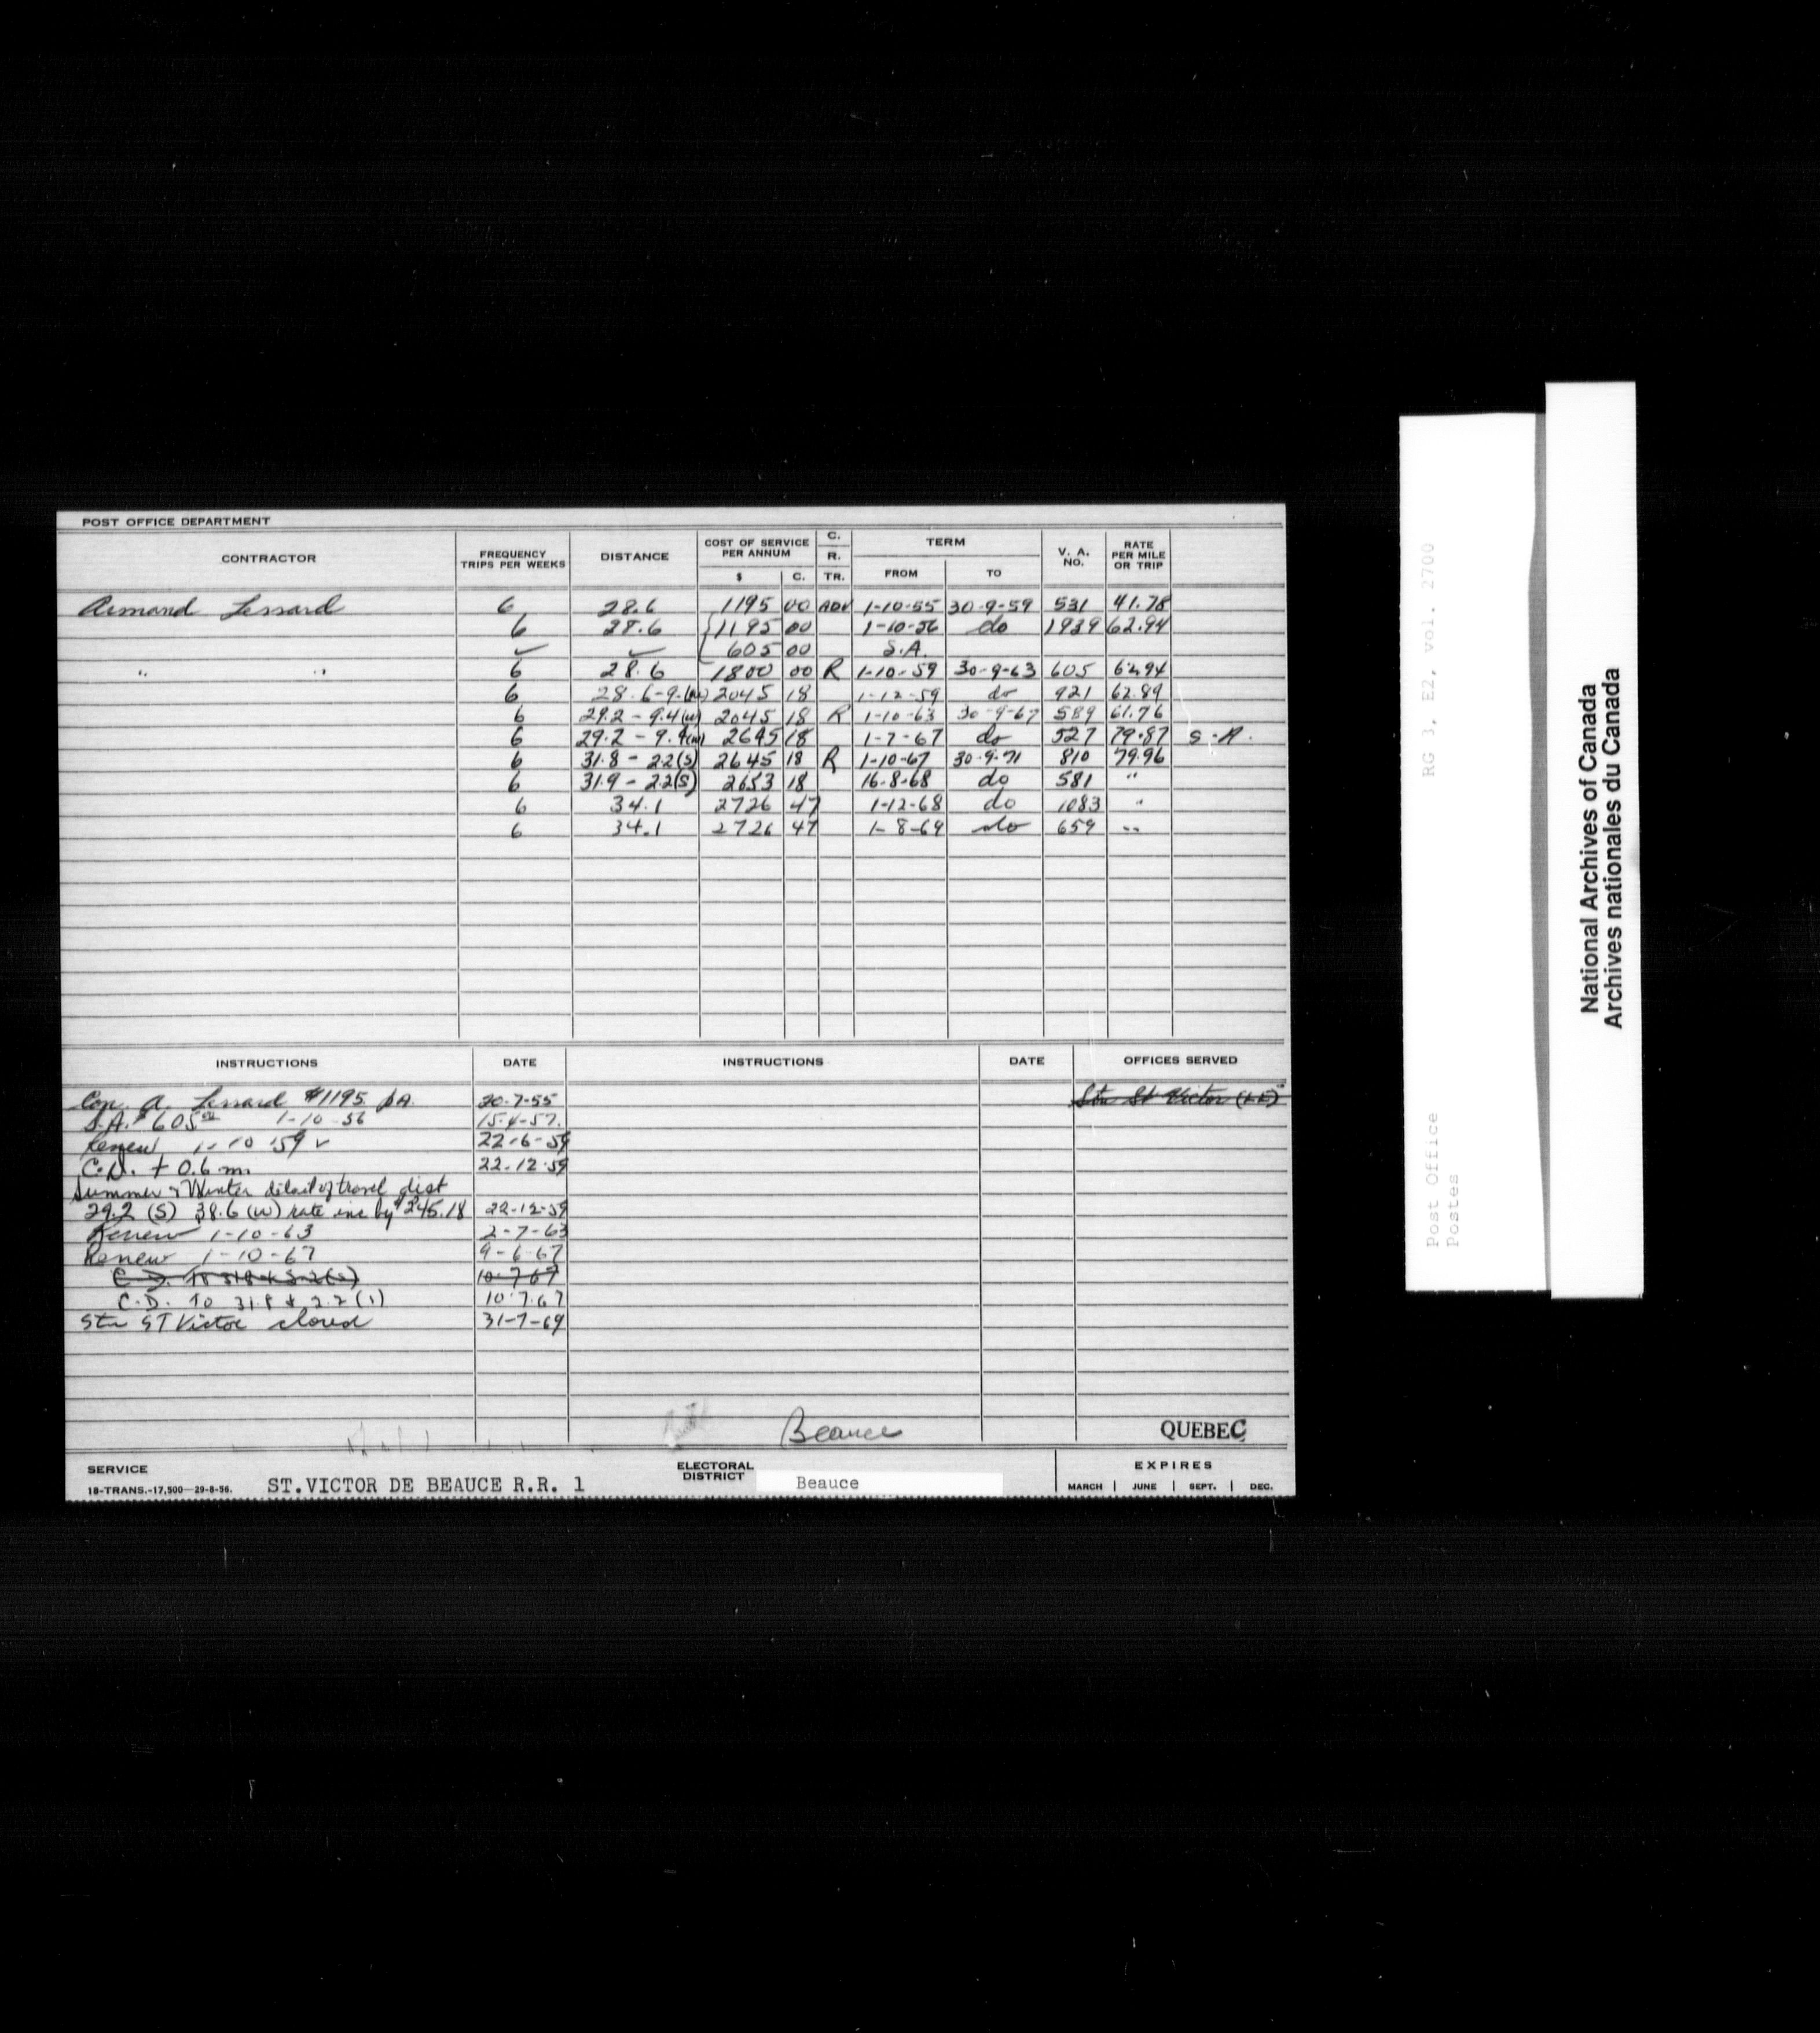 POST OFFICE DEPARTMENT
CONTRACTOR FREQUENCY TRIPS PER WEEKS DISTANCE COST OF SERVICE PER ANNUM $ C. C. R. TR. TERM FROM TO V. A. NO. RATE PER MILE OR TRIP
Armand Lessard 6 28.6 1195 00 ADV 1-10-55 30-9-59 531 41.78
6 28.6 1195 00 1-10-56 do 1939 62.94
605 00 S.A.
" " 6 28.6 1800 00 R 1-10-59 30-9-63 605 62.94
6 28.6-9.4(w) 2045 18 1-12-59 do 921 62.89
6 29.2-9.4(w) 2045 18 R 1-10-63 30-9-67 589 61.76
6 29.2-9.4(w) 2645 18 1-7-67 do 527 79.87 S.A.
6 31.8-2.2(S) 2645 18 R 1-10-67 30-9-71 810 79.96
6 31.9-2.2(S) 2653 18 16-8-68 do 581 "
6 34.1 2726 47 1-12-68 do 1083 "
6 34.1 2726 47 1-8-69 do 659 "
INSTRUCTIONS DATE INSTRUCTIONS DATE OFFICES SERVED
Con. A. Lessard $1195 p.a. 20-7-55 Stn St Victor
S.A. $605 00 1-10-56 15-4-57
Renew 1-10-59 22-6-59
C.D. + 0.6 m. 22-12-59
Summer & Winter of travel dist
29.2 (S) 38.6 (W) rate inc by $245.18 22-12-59
Renew 1-10-63 2-7-63
Renew 1-10-67 9-6-67
C.D. To 10-7-67
C.D. To 31.8 & 2.2 10-7-67
Stn ST Victor closed 31-7-69
Beauce QUEBEC
SERVICE ST.VICTOR DE BEAUCE R.R. 1 ELECTORAL DISTRICT Beauce EXPIRES
18-TRANS.-17,500-29-8-56. MARCH JUNE SEPT. DEC.
RG 3, E2, vol. 2700
Post Office
Postes
National Archives of Canada
Archives nationales du Canada